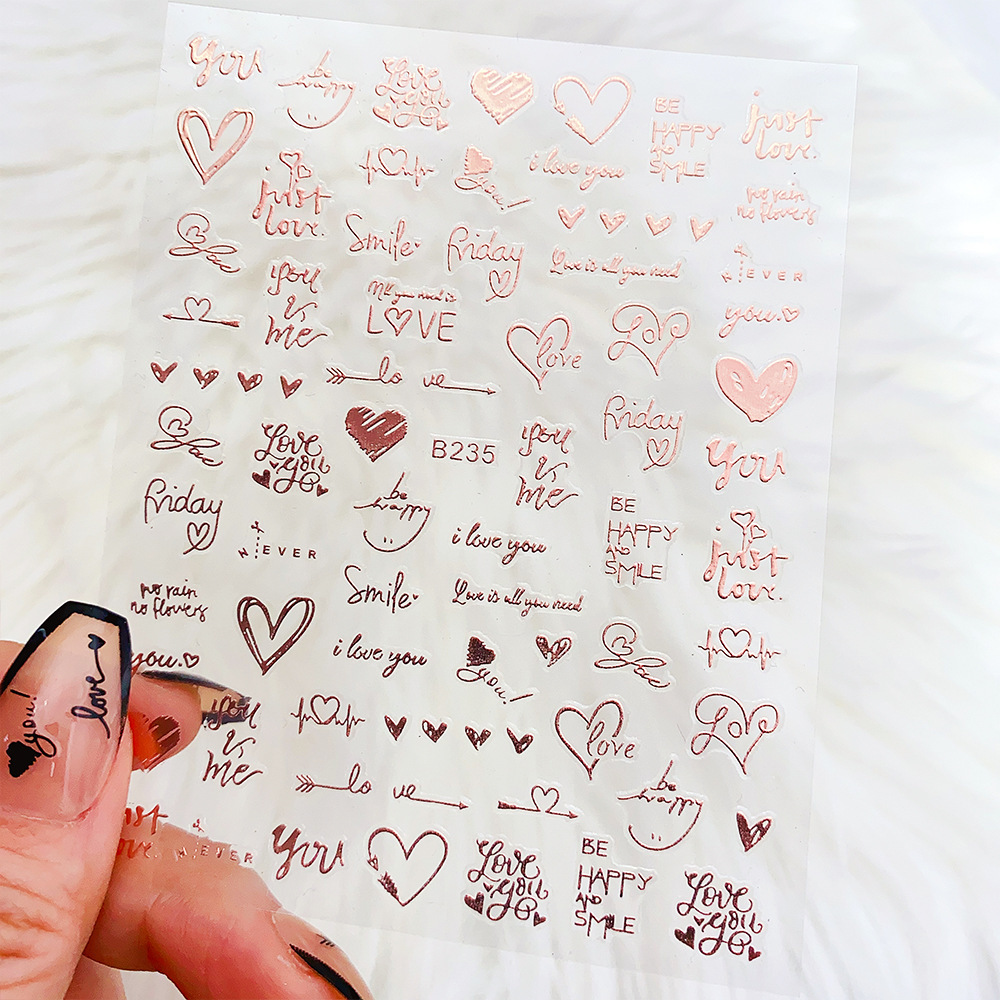 you
be
happy
Love
you
BE
HAPPY
AND
SMILE
just
love.
i love you
you!
just
love.
no rain
no flowers
Smile
friday
Love is all you need
NEVER
love
you
&
me
All you need is
LOVE
you.
love
love
lo ve
friday
love
Love
you
B235
you
&
me
you
friday
be
happy
BE
HAPPY
AND
SMILE
just
love.
i love you
NEVER
no rain
no flowers
Smile
Love is all you need
you.
i love you
you!
love
love
you!
you
&
me
love
love
lo ve
be
happy
just
love.
NEVER
you
Love
you
BE
HAPPY
AND
SMILE
Love
you